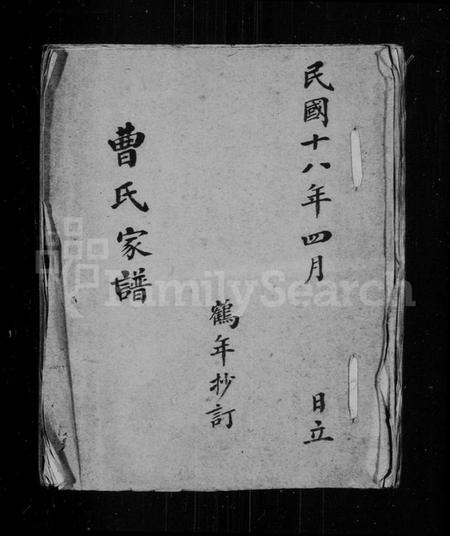 民國十八年四月 日立
鶴年抄訂
曹氏家譜
FamilySearch